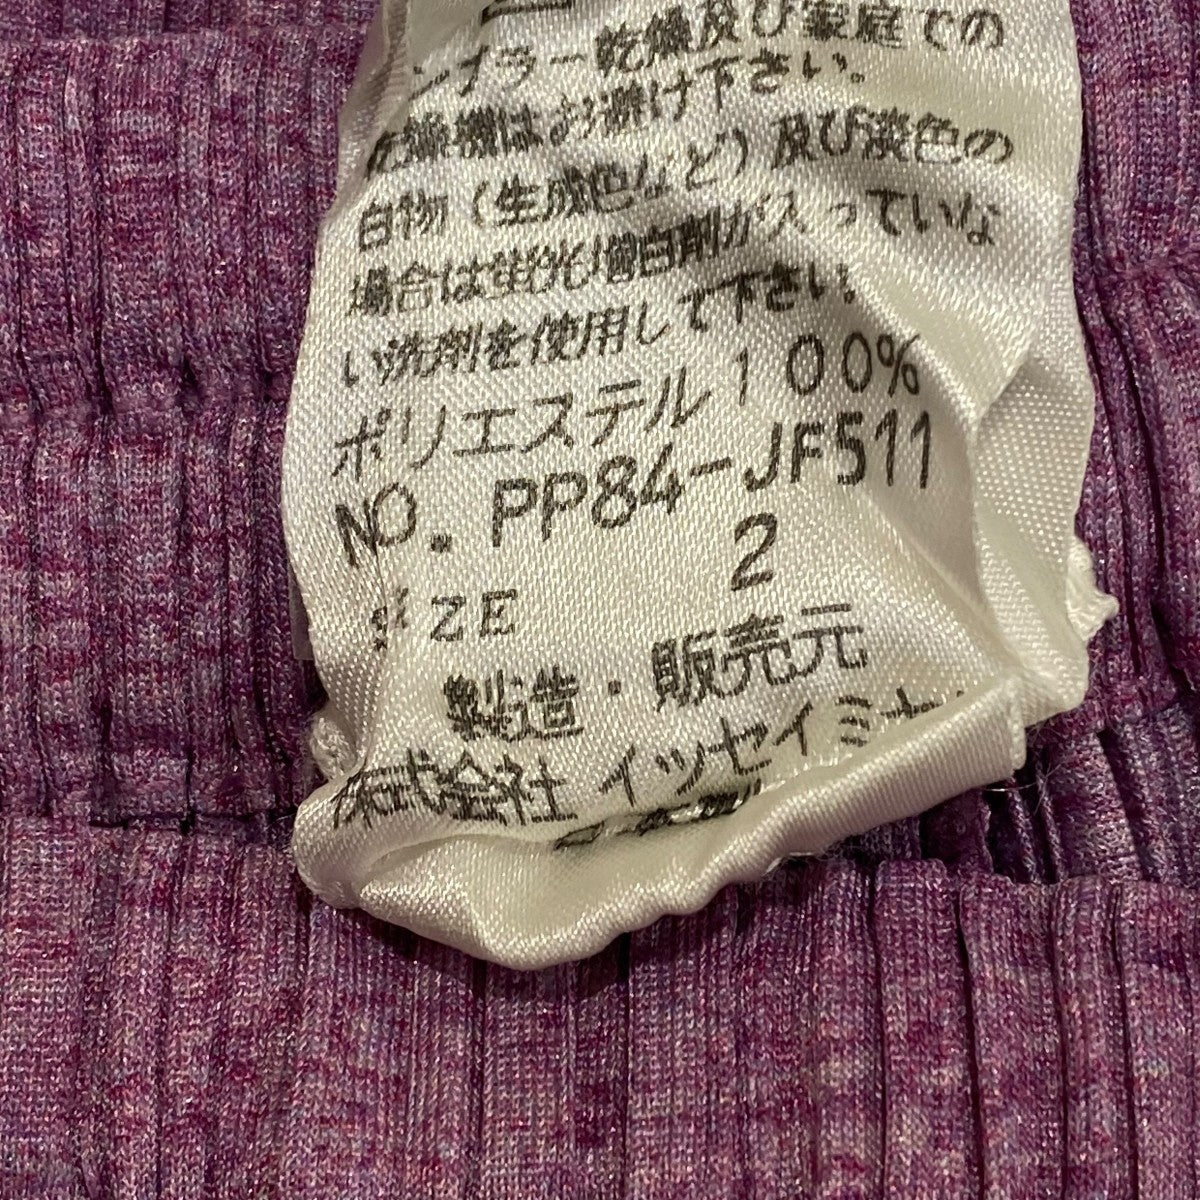 タンブラー乾燥及び家庭での
乾燥機はお避け下さい。
白物（生成色など）及び淡色の
場合は蛍光増白剤が入っていな
い洗剤を使用して下さい。
ポリエステル100%
NO. PP84-JF511
SIZE 2
製造・販売元
株式会社 イッセイミヤ